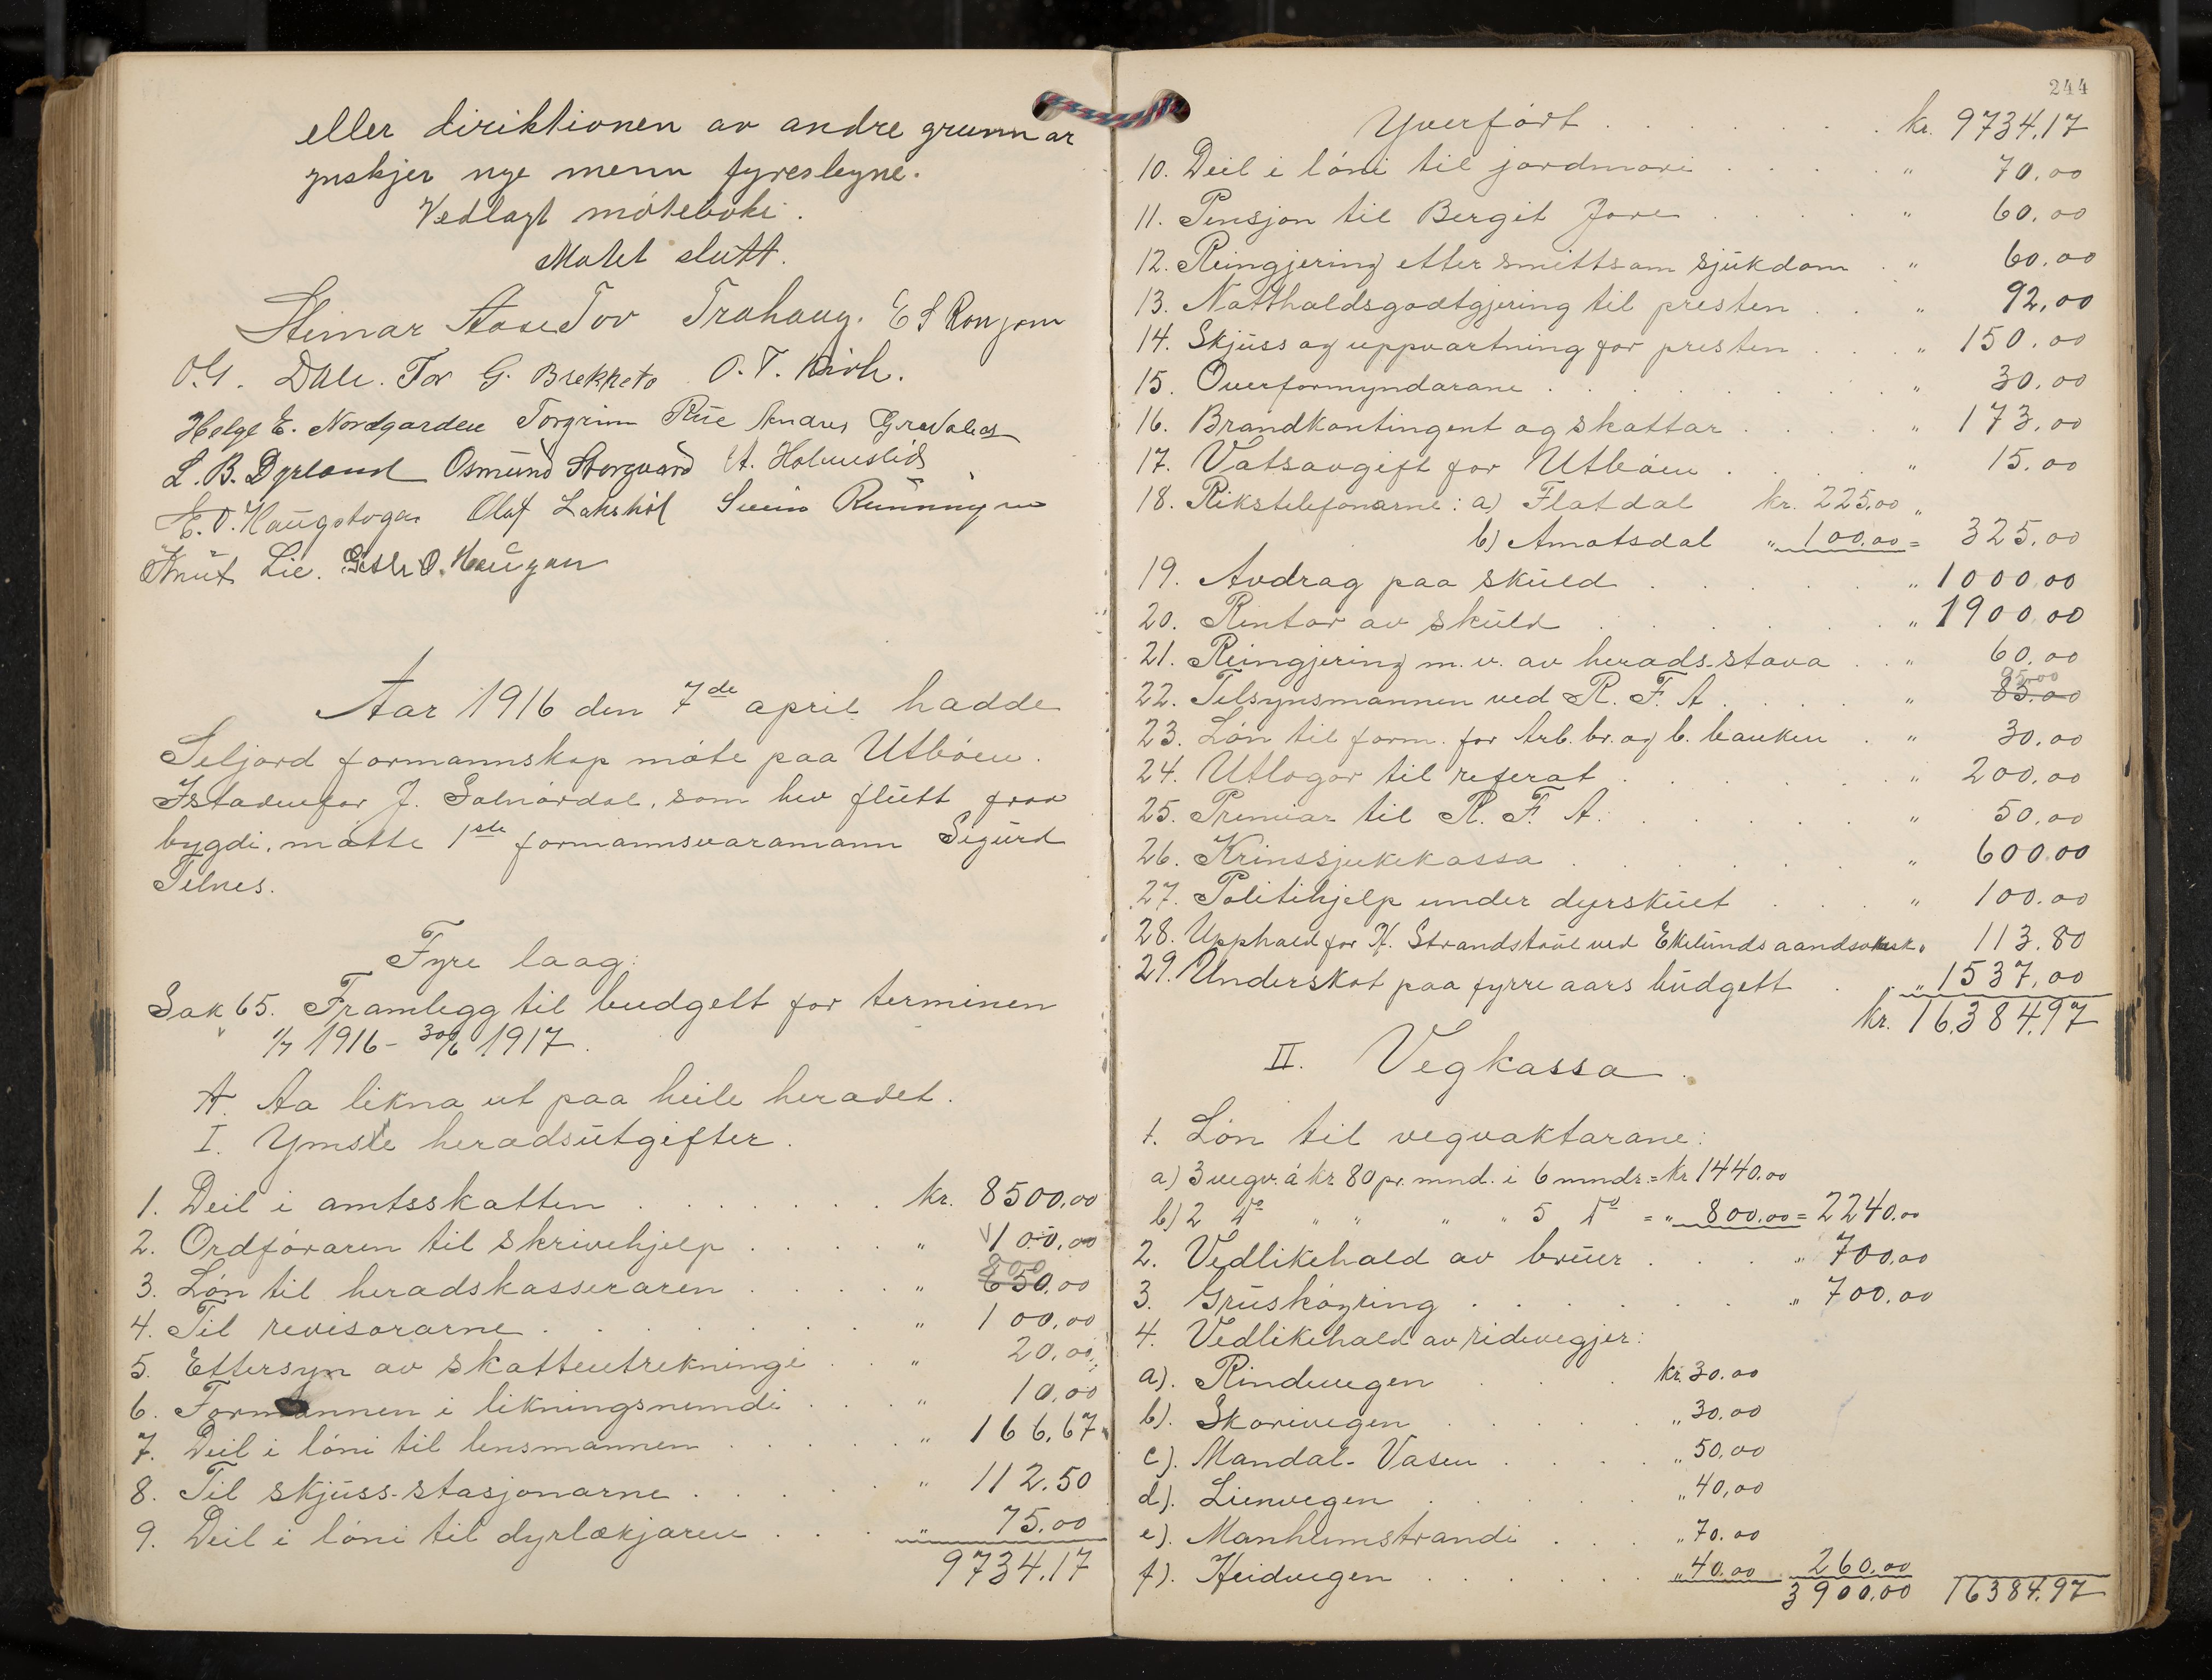 eller diriktionen av andre grunnar
ynskjer nye menn fyreslegne.
Vedlagt møteboki.
Møtet slutt.
Steinar Aase Tov Trahaug. E S Ronjom
O. G. Dale. Tor G. Brekketo O. T. Kivle.
Helge E. Nordgarden Torgrim Rue Anders Grevalid
L. B. Dyrland Osmund Storgaard A. Holmslid
E. O. Haugstoga. Olaf Lakshøl Svein Runningen
Knut Lie. Gisle O. Haugan
Aar 1916 den 7de april hadde
Seljord formannskap møte paa Utbøen.
Istadenfor J. Solnørdal, som hev flutt fraa
bygdi, møtte 1ste formannsvaramann Sigurd
Telnes.
Fyre laag:
Sak 65. Framlegg til budgett for terminen
1/7 1916 - 30/6 1917.
A. Aa likna ut paa heile heradet.
I. Ymste heradsutgifter.
1. Deil i amtsskatten . . . . . . . kr. 8500.00
2. Ordføraren til skrivehjelp . . . . " 100.00
3. Løn til heradskasseraren . . . . " 650.00 800
4. Til revisorarne . . . . . . . " 100.00
5. Ettersyn av skatteutrekningi . . " 20.00
6. Formannen i likningsnemdi . . . " 10.00
7. Deil i løni til lensmannen . . . . . " 166.67
8. Til skjuss-stasjonarne . . . . . " 112.50
9. Deil i løni til dyrlækjaren . . . " 75.00
9734.17
244
Yverført . . . . . . . . kr. 9734.17
10. Deil i løni til jordmori . . . . " 70.00
11. Pensjon til Bergit Jore . . . . " 60.00
12. Reingjering etter smittsam sjukdom . " 60.00
13. Natthaldsgodtgjering til presten . . " 92.00
14. Skjuss og uppvartning for presten . . . " 150.00
15. Overformyndarane . . . . . . . " 30.00
16. Brandkontingent og skattar . . . . " 173.00
17. Vatsavgift for Utbøen . . . . " 15.00
18. Rikstelefonarne: a) Flatdal kr. 225.00 "
b) Amotsdal " 100.00 = 325.00
19. Avdrag paa skuld . . . . . " 1000.00
20. Rentor av skuld . . . . . . " 1900.00
21. Reingjering m. v. av herads-stova . . " 60.00
22. Tilsynsmannen ved R. F. A . . . . " 85.00 95.00
23. Løn til form. for Arb. br. og b. banken . " 30.00
24. Utlogor til referat . . . . . . " 200.00
25. Premiar til R. F. A. . . . . . " 50.00
26. Krinssjukekassa . . . . . . " 600.00
27. Politihjelp under dyrskuet . . . " 100.00
28. Upphald for H. Strandstøil ved Ekelunds aandsvaksk. " 113.80
29. Underskot paa fyrre aars budgett . . " 1537.00
kr. 16.384.97
II. Vegkassa.
1. Løn til vegvaktarane:
a) 3 vegv. á kr 80 pr. mnd. i 6 mndr. = kr 1440.00
b) 2 do " " " " 5 do = " 800.00 = 2240.00
2. Vedlikehald av bruer . . . . " 700.00
3. Gruskøyring . . . . . . . " 700.00
4. Vedlikehald av ridevegjer:
a). Rindevegen . . . kr. 30.00
b). Skorivegen . . . . . " 30.00
c). Mandal-Vasen . . . . " 50.00
d). Lienvegen . . . . . " 40.00
e). Manheimstrandi . . . " 70.00
f). Heidvegen . . . . . . " 40.00 260.00
3900.00 16384.97